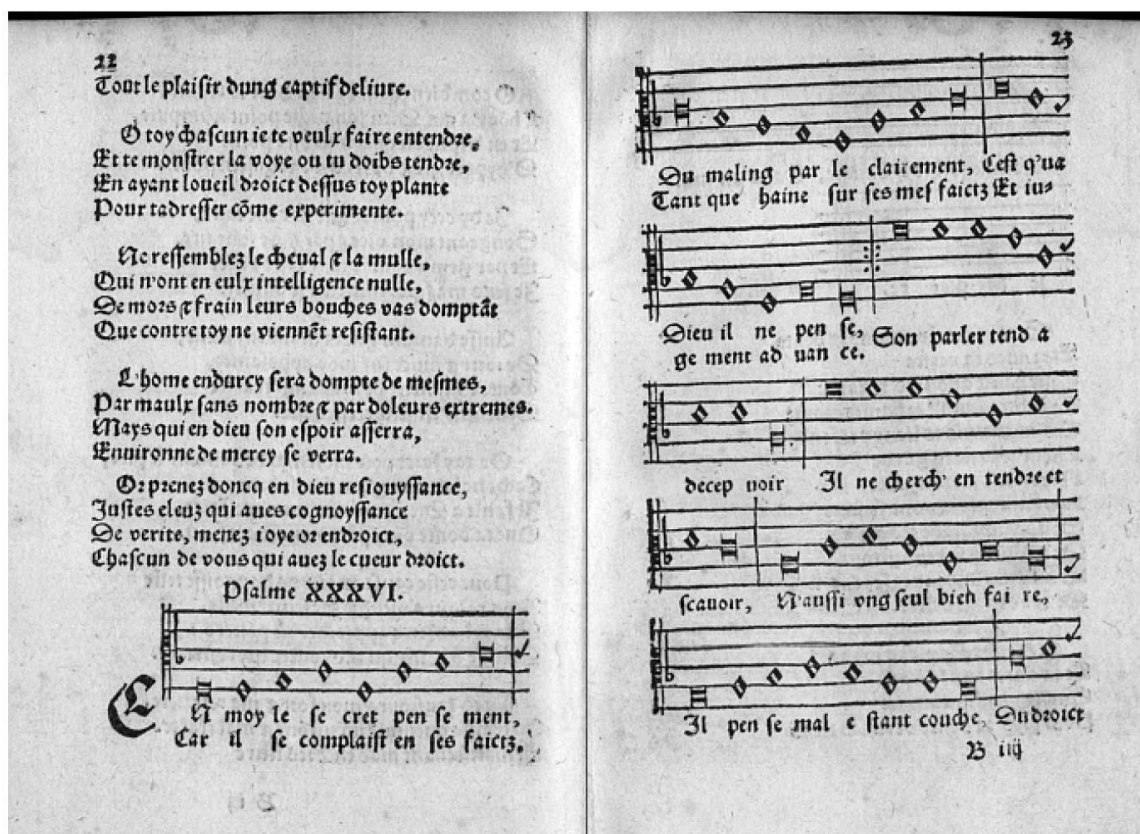 22
Tout le plaisir dung captif deliure.
O toy chascun ie te veulx faire entendre,
Et te monstrer la voye ou tu doibs tendre,
En ayant loueil droict dessus toy plante
Pour tadresser cõme experimente.
Ne ressemblez le cheual & la mulle,
Qui n'ont en eulx intelligence nulle,
De mors & frain leurs bouches vas domptãt
Que contre toy ne viennẽt resistant.
L'home endurcy sera dompte de mesmes,
Par maulx sans nombre & par doleurs extremes.
Mays qui en dieu son espoir asserra,
Enuironne de mercy se verra.
Or prenez doncq en dieu resiouyssance,
Justes eleuz qui aues cognoyssance
De verite, menez ioye or endroict,
Chascun de vous qui auez le cueur droict.
Psalme XXXVI.
EN moy le se cret pen se ment,
Car il se complaist en ses faictz,
23
Du maling par le clairement, Cest q'ua
Tant que haine sur ses mes faictz Et iu-
Dieu il ne pen se, Son parler tend a
ge ment ad uan ce.
decep uoir Il ne cherch' en tendre et
scauoir, N'aussi vng seul bien fai re,
Il pen se mal e stant couche, Du droict
B iiij